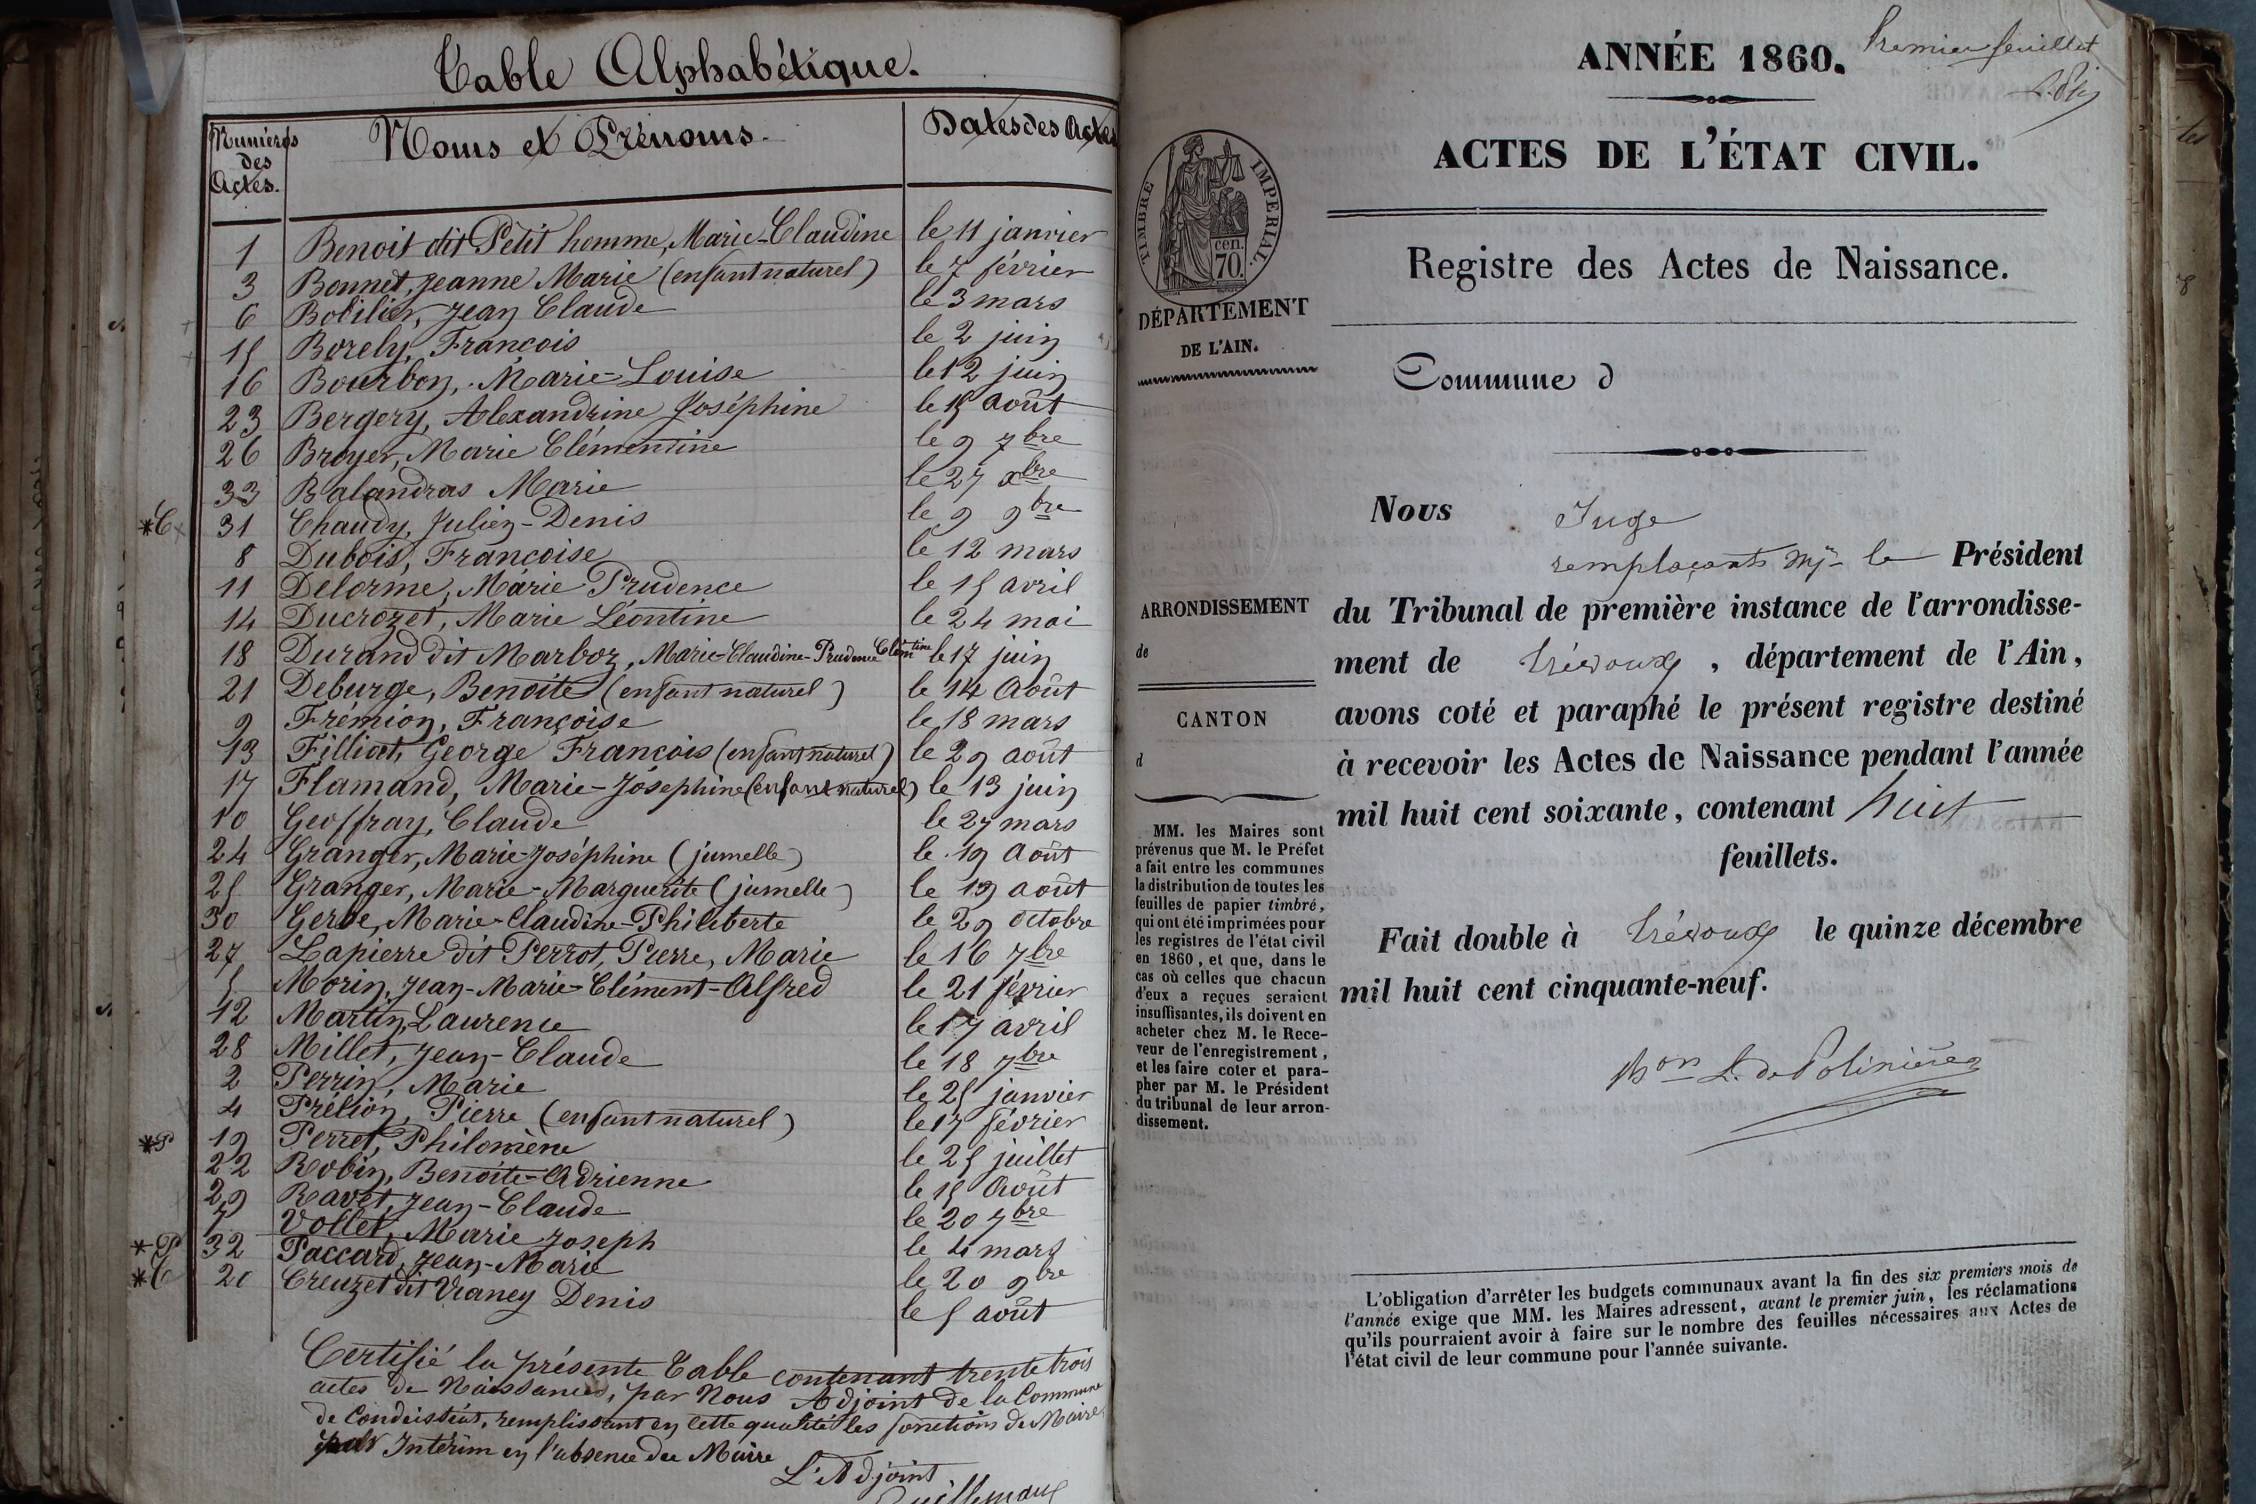 Table Alphabétique.
Numéros des Actes. Noms et Prénoms. Dates des Actes
1 Benoit dit Petit homme, Marie-Claudine le 11 janvier
3 Bonnet, Jeanne Marie (enfant naturel) le 7 février
6 Bobilier, Jean Claude le 3 mars
15 Borely, François le 2 juin
16 Bourbon, Marie-Louise le 12 juin
23 Bergery, Alexandrine Joséphine le 15 Août
26 Broyer, Marie Clémentine le 9 7bre
33 Balandras Marie le 27 xbre
*C 31 Chaudy, Julien-Denis le 9 9bre
8 Dubois, Françoise le 12 mars
11 Delorme, Marie Prudence le 15 avril
14 Ducrozet, Marie Léontine le 24 mai
18 Durand dit Marboz, Marie-Claudine-Prudence Clémentine le 17 juin
21 Deburge, Benoite (enfant naturel) le 14 Août
9 Frémion, Françoise le 18 mars
13 Filliat, George François (enfant naturel) le 29 août
17 Flamand, Marie-Joséphine (enfant naturel) le 13 juin
10 Geoffray, Claude le 27 mars
24 Granger, Marie-Joséphine (jumelle) le 19 Août
25 Granger, Marie-Marguerite (jumelle) le 19 août
30 Gerbe, Marie-Claudine-Philiberte le 29 octobre
27 Lapierre dit Perrot, Pierre, Marie le 16 7bre
5 Morin, Jean-Marie-Clément-Alfred le 21 février
12 Martin, Laurence le 17 avril
28 Millet, Jean-Claude le 18 7bre
2 Perrin, Marie le 25 janvier
4 Prélion, Pierre (enfant naturel) le 17 février
*P 19 Perret, Philomène le 25 juillet
22 Robin, Benoite-Adrienne le 15 Août
29 Ravet, Jean-Claude le 20 7bre
7 Vollet, Marie Joseph le 4 mars
*P 32 Paccard, Jean-Marie le 20 9bre
*C 20 Creuzet dit Vraney Denis le 5 août
Certifié la présente Table contenant trente trois
actes de Naissances, par Nous Adjoint de la Commune
de Condeissiat, remplissant en cette qualité les fonctions de Maire
par Intérim en l'absence du Maire
L'Adjoint
Guillemaud
Premier feuillet
ANNÉE 1860.
ACTES DE L'ÉTAT CIVIL.
TIMBRE IMPERIAL.
cen.
70.
Registre des Actes de Naissance.
DÉPARTEMENT
DE L'AIN.
Commune d
Nous Juge
remplaçant Mr le Président
ARRONDISSEMENT
de
CANTON
d
du Tribunal de première instance de l'arrondisse-
ment de Trévoux, département de l'Ain,
avons coté et paraphé le présent registre destiné
à recevoir les Actes de Naissance pendant l'année
mil huit cent soixante, contenant huit
feuillets.
Fait double à Trévoux le quinze décembre
mil huit cent cinquante-neuf.
Bon L. de Polinière
MM. les Maires sont
prévenus que M. le Préfet
a fait entre les communes
la distribution de toutes les
feuilles de papier timbré,
qui ont été imprimées pour
les registres de l'état civil
en 1860, et que, dans le
cas où celles que chacun
d'eux a reçues seraient
insuffisantes, ils doivent en
acheter chez M. le Rece-
veur de l'enregistrement,
et les faire coter et para-
pher par M. le Président
du tribunal de leur arron-
dissement.
L'obligation d'arrêter les budgets communaux avant la fin des six premiers mois de
l'année exige que MM. les Maires adressent, avant le premier juin, les réclamations
qu'ils pourraient avoir à faire sur le nombre des feuilles nécessaires aux Actes de
l'état civil de leur commune pour l'année suivante.